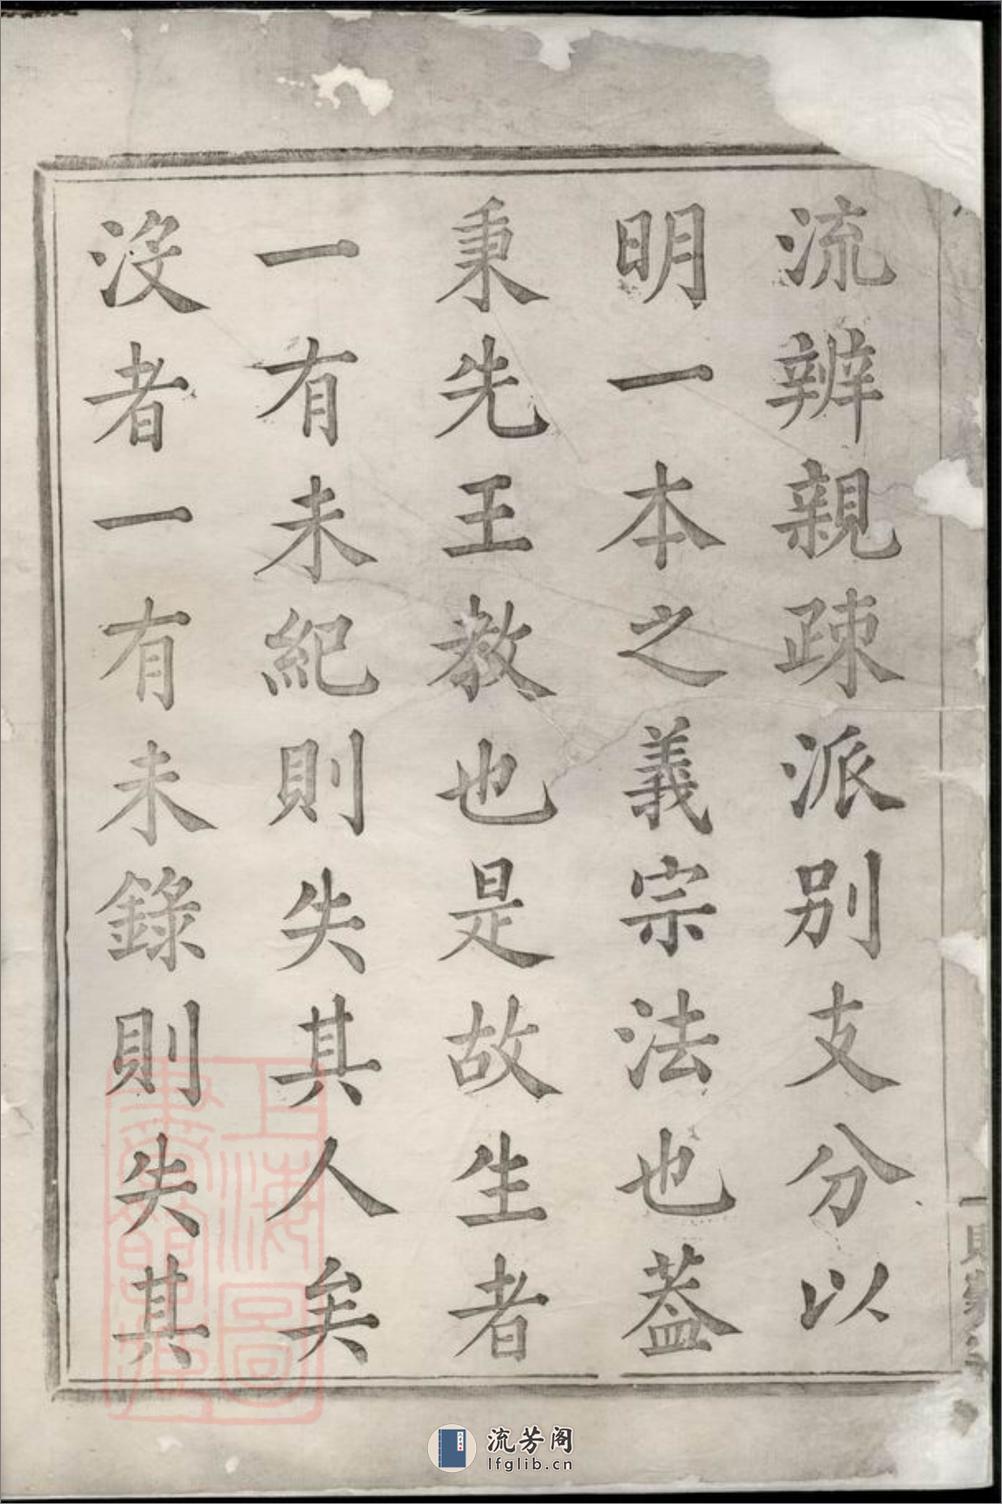 流辨親疎派別支分以
明一本之義宗法也葢
秉先王教也是故生者
一有未紀則失其人矣
沒者一有未錄則失其
上海圖
書館藏
流芳阁
lfglib.cn